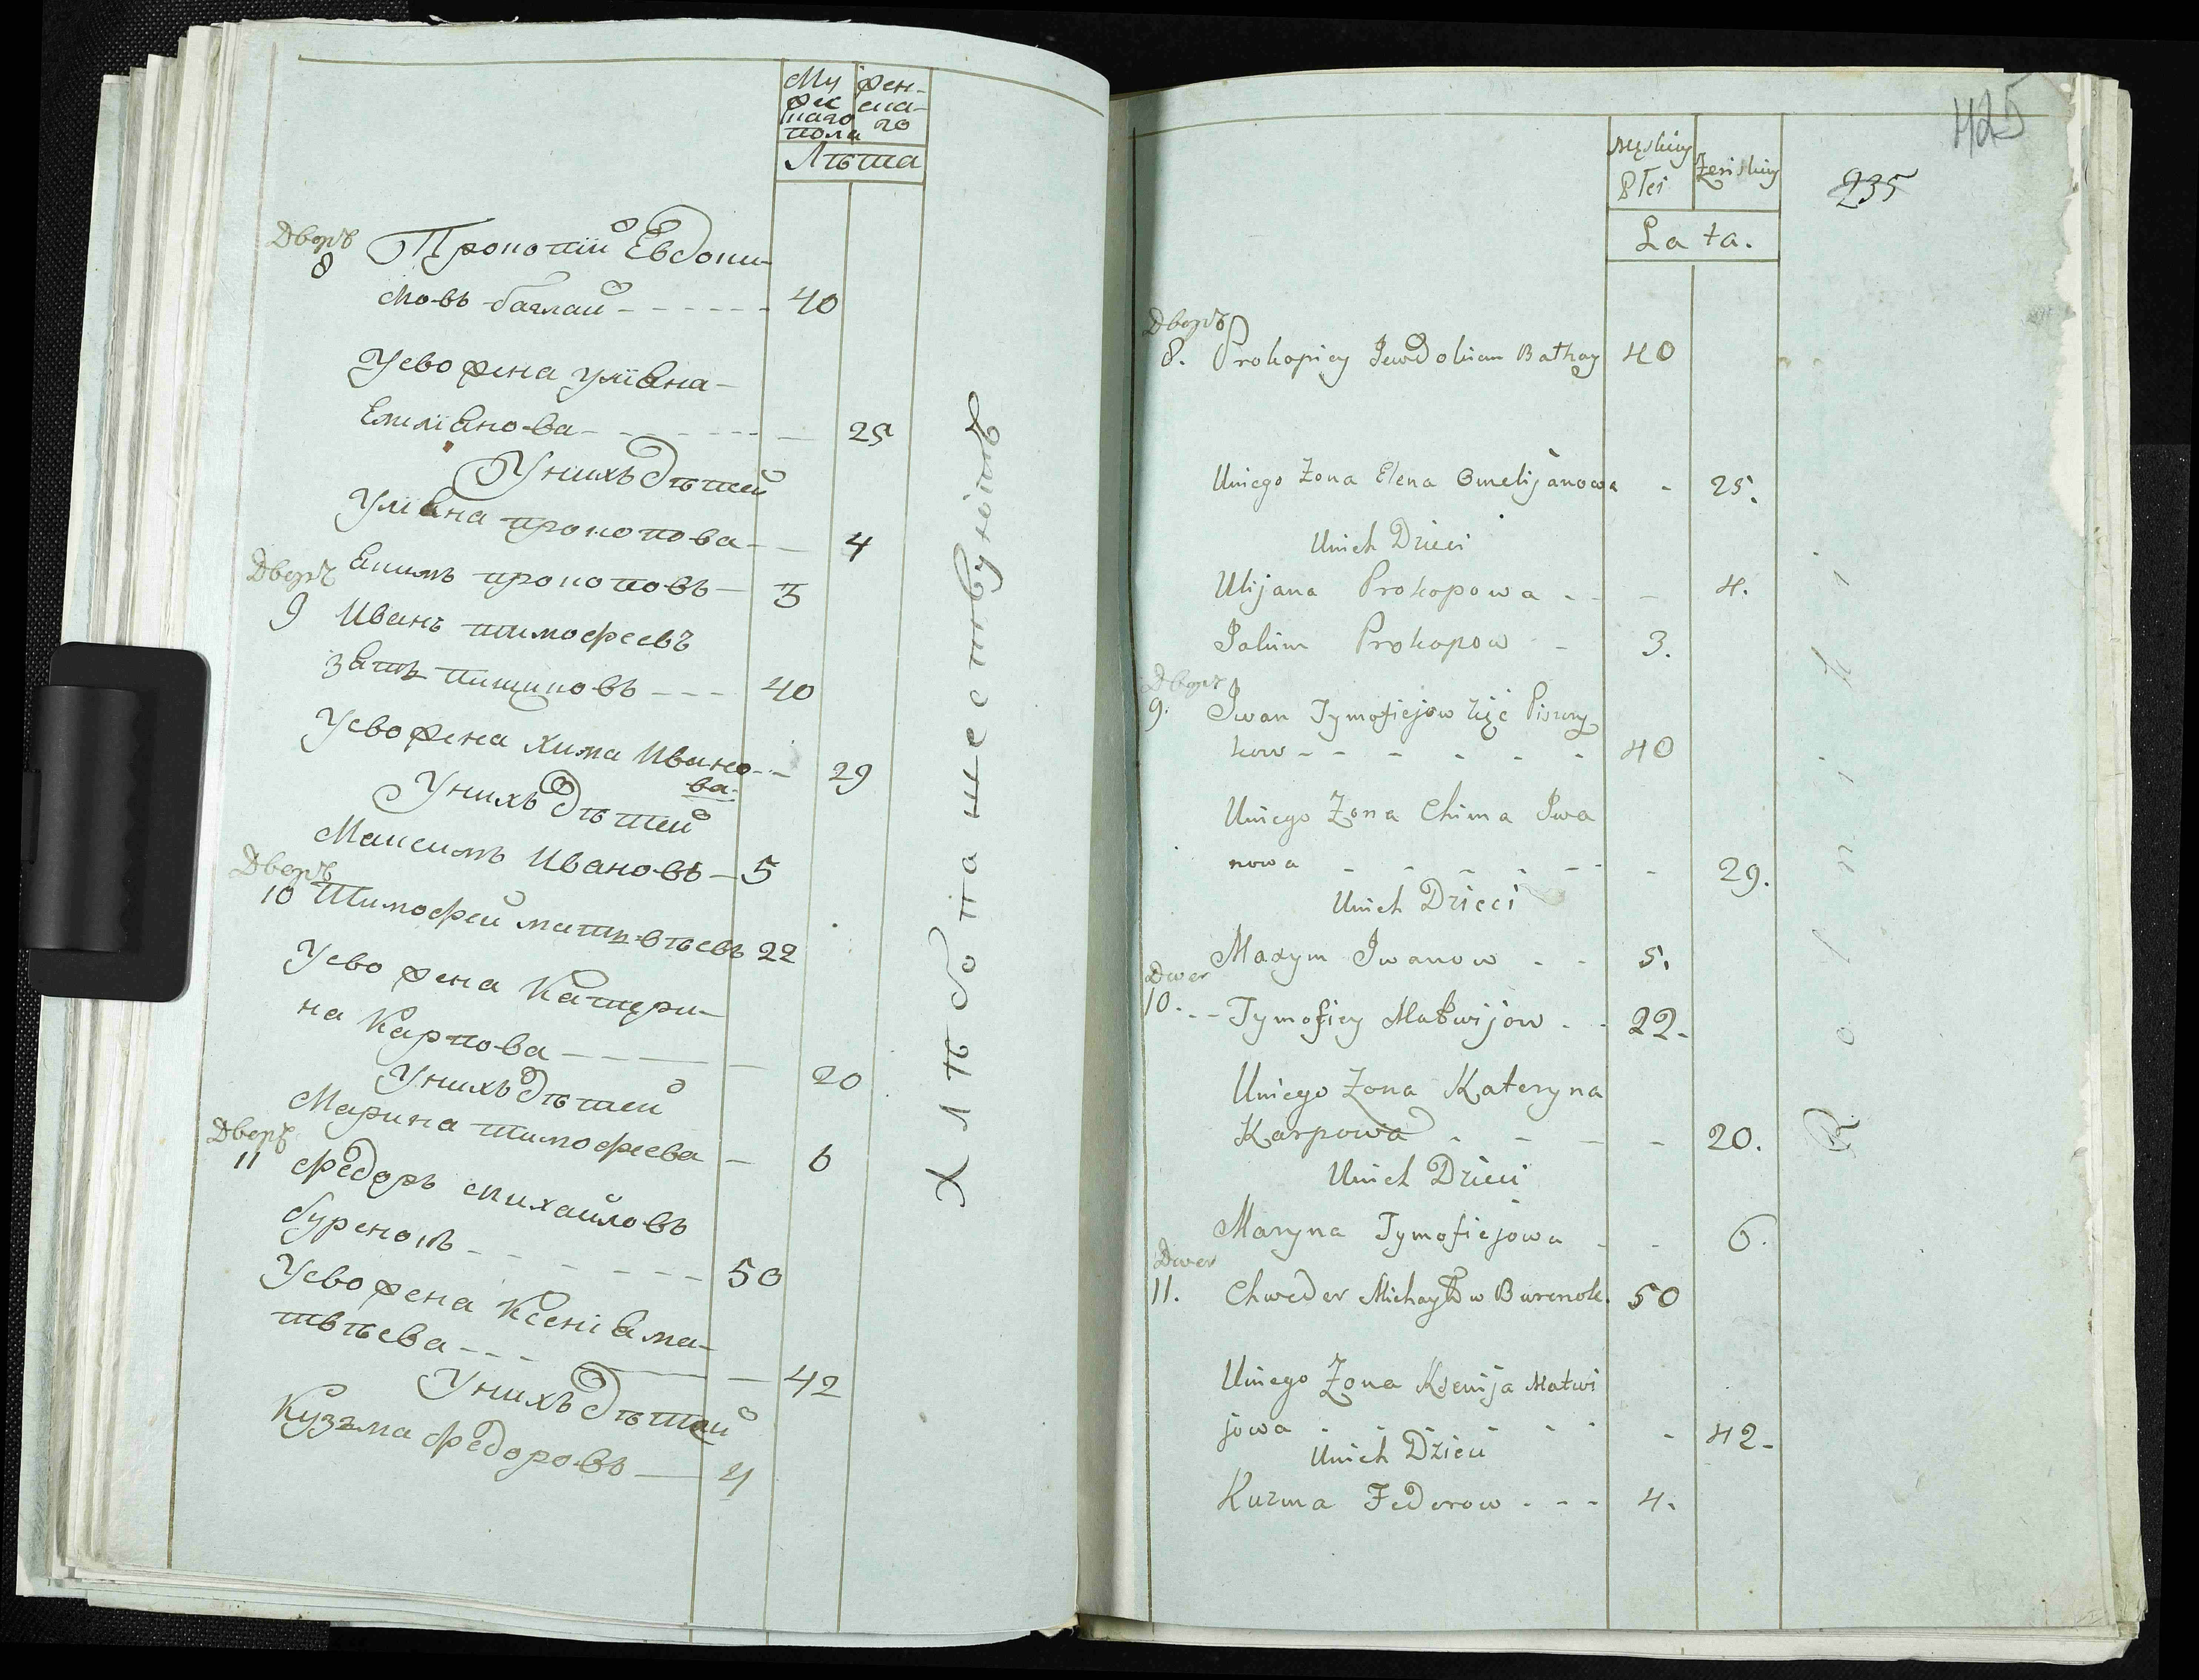 Му жен-
жес ска-
каго го
пола
Лѣта
Дворъ
8 Прокопій Евдоки-
мовъ баглай - - - - - - 40
Уево жена улїана-
Емилїанова - - - - - - - 25
Унихъ дѣтей
Улїана прокопова - - 4
Дворъ Екимъ прокоповъ - 3
9 Иванъ тимофеевъ
зять пищиковъ - - - 40
Уево жена хима Ивано- - 29
ва-
Унихъ дѣтей
Максимъ Ивановъ - 5
Дворъ
10 Тимофей матвѣевъ 22
Уево жена Катери-
на Карпова - - - - 20
Унихъ дѣтей
Марина тимофеева - 6
Дворъ
11 Федоръ михайловъ
буренокъ - - - - - - 50
Уево жена Ксенїа ма-
твѣева - - - - - 42
Унихъ дѣтей
Кузма федоровъ - 4
Хлѣбопашествуютъ
425
235
męskiey żeńskiey
płei
Lata.
Дворъ
8. Prokopiey Jewdokim Bałhay 40
Uniego Zona Elena Omelijanowa - 25.
Unich Dzieci
Ulijana Prokopowa - - - 4.
Jakim Prokopow - 3.
Дворъ
9. Iwan Tymofiejow Zięć Piszczy
kow - - - - - - 40
Uniego Zona Chima Iwa
nowa - - - - - - 29.
Unich Dzieci
Maxym Iwanow - - 5.
Dwer
10. - - Tymofiey Matwijow - - 22-
Uniego Zona Kateryna
Karpowa - - - - 20.
Unich Dzieci
Maryna Tymofiejowa - - 6.
Dwer
11. Chweder Michayłow Burenok. 50
Uniego Zona Ksenija Matwi
jowa - - - - - - - 42-
Unich Dzieci
Kuzma Fedorow - - - 4.
Rolniki